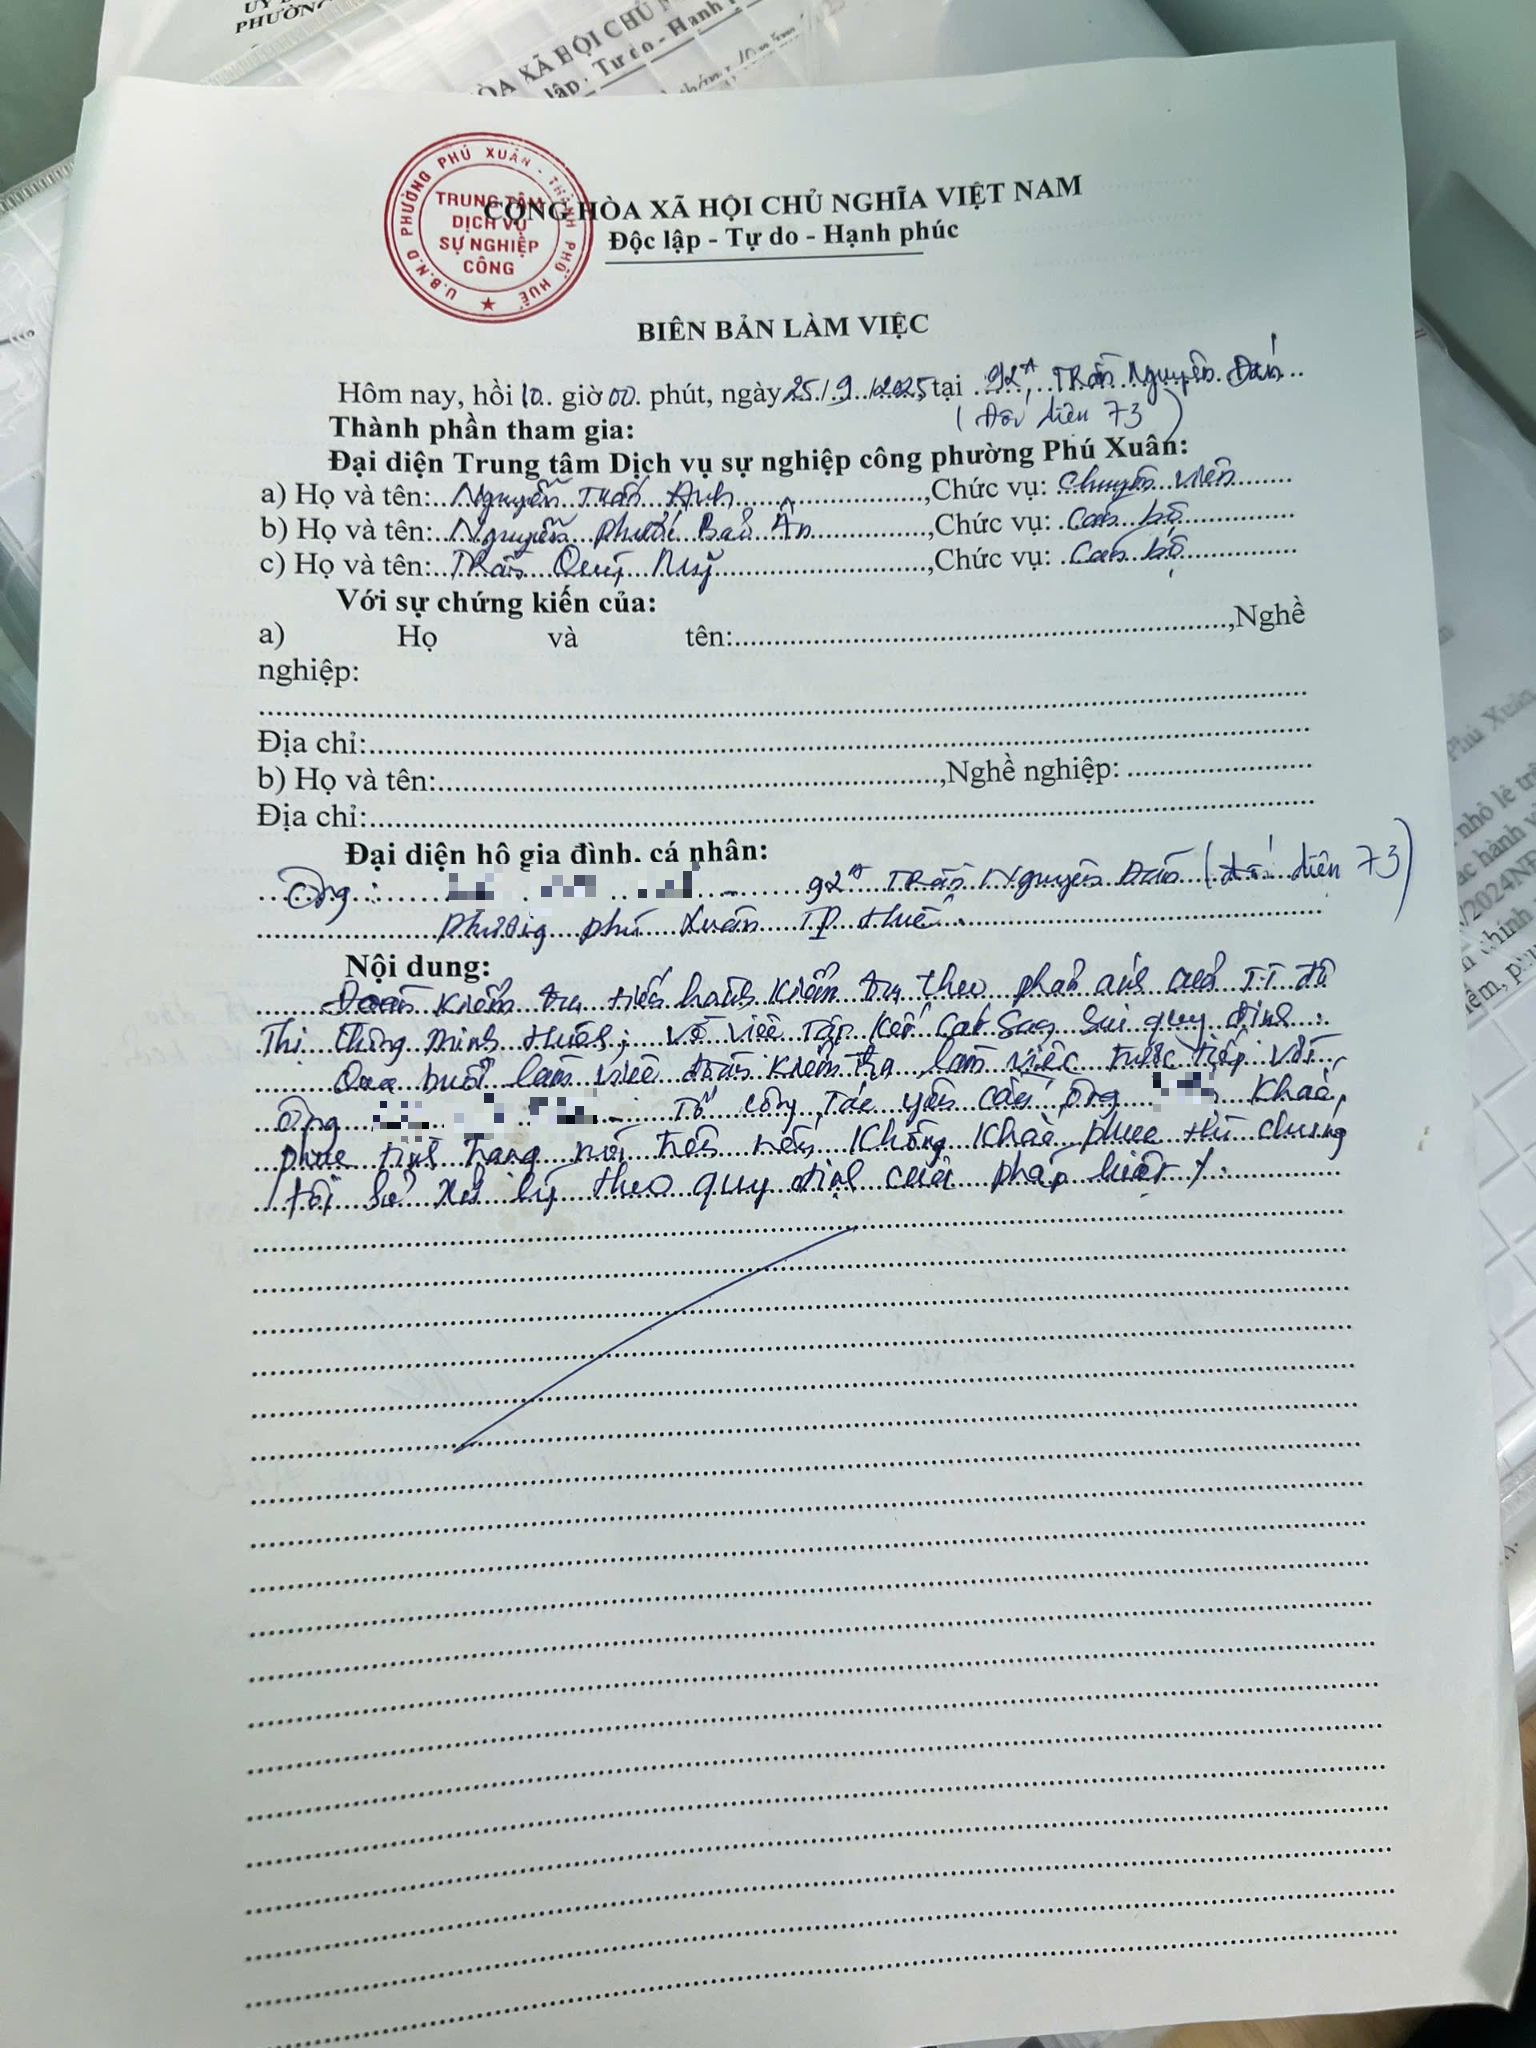 U.B.N.D PHƯỜNG PHÚ XUÂN - THÀNH PHỐ HUẾ
TRUNG TÂM
DỊCH VỤ
SỰ NGHIỆP
CÔNG
CỘNG HÒA XÃ HỘI CHỦ NGHĨA VIỆT NAM
Độc lập - Tự do - Hạnh phúc
BIÊN BẢN LÀM VIỆC
Hôm nay, hồi 10 giờ 00 phút, ngày 25/9/2025, tại 92A Trần Nguyên Đán
(đối diện 73)
Thành phần tham gia:
Đại diện Trung tâm Dịch vụ sự nghiệp công phường Phú Xuân:
a) Họ và tên: Nguyễn Tuấn Anh, Chức vụ: Chuyên viên
b) Họ và tên: Nguyễn Phước Bảo Ân, Chức vụ: Cán bộ
c) Họ và tên: Trần Quý Mỹ, Chức vụ: Cán bộ
Với sự chứng kiến của:
a) Họ và tên:, Nghề
nghiệp:
Địa chỉ:
b) Họ và tên:, Nghề nghiệp:
Địa chỉ:
Đại diện hộ gia đình, cá nhân:
Ông: 92A Trần Nguyên Đán (đối diện 73)
Phường Phú Xuân TP Huế.
Nội dung:
Đoàn kiểm tra tiến hành kiểm tra theo phản ánh của TT đô
Thị thông minh Huế; về việc Tập kết Cát Sạn sai quy định.
Qua buổi làm việc đoàn kiểm tra làm việc trực tiếp với
Ông Tổ công Tác yêu cầu ông khắc
phục tình trạng nói trên nếu không khắc phục thì chúng
tôi sẽ xử lý theo quy định của pháp luật ./.